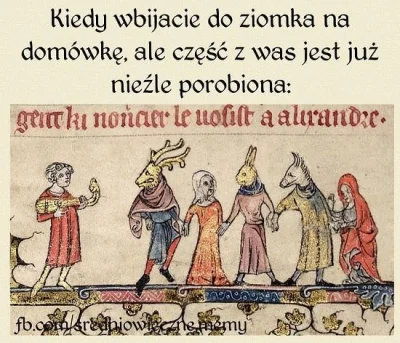 Kiedy wbijacie do ziomka na
domówkę, ale część z was jest już
nieźle porobiona:
gent ki noncier le uosist a alixandre.
fb.com/sredniowieczne.memy